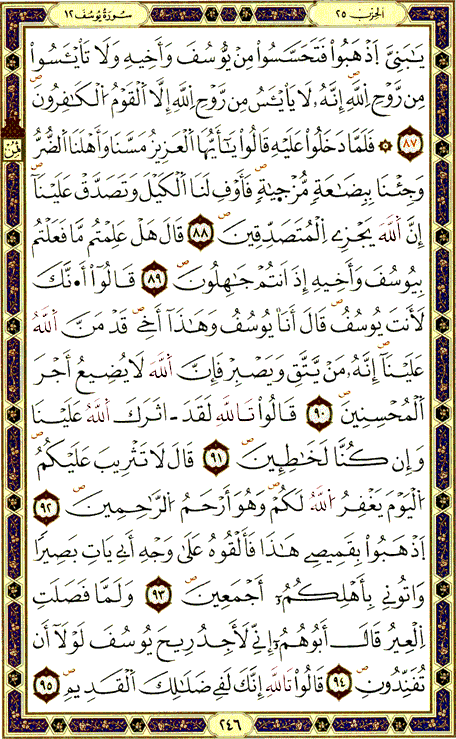 الحزب ٢٥
سورة يوسف ١٢
يَٰبَنِيَّ اَ۪ذْهَبُواْ فَتَحَسَّسُواْ مِنْ يُّوسُفَ وَأَخِيهِ وَلَا تَاْيْـَٔسُواْ
مِن رَّوْحِ اِ۬للَّهِ إِنَّهُۥ لَا يَاْيْـَٔسُ مِن رَّوْحِ اِ۬للَّهِ إِلَّا اَ۬لْقَوْمُ اُ۬لْكَٰفِرُونَ
٨٧ ۞ فَلَمَّا دَخَلُواْ عَلَيْهِ قَالُواْ يَٰٓأَيُّهَا اَ۬لْعَزِيزُ مَسَّنَا وَأَهْلَنَا اَ۬لضُّرُّ
وَجِئْنَا بِبِضَٰعَةٍ مُّزْج۪يٰةٍ فَأَوْفِ لَنَا اَ۬لْكَيْلَ وَتَصَدَّقْ عَلَيْنَآ
إِنَّ اَ۬للَّهَ يَجْزِے اِ۬لْمُتَصَدِّقِينَ ٨٨ قَالَ هَلْ عَلِمْتُم مَّا فَعَلْتُم
بِيُوسُفَ وَأَخِيهِ إِذَ اَنتُمْ جَٰهِلُونَ ٨٩ قَالُوٓاْ أَ.نَّكَ
لَأَنتَ يُوسُفُ قَالَ أَنَا يُوسُفُ وَهَٰذَآ أَخِے قَدْ مَنَّ اَ۬للَّهُ
عَلَيْنَآ إِنَّهُۥ مَنْ يَّتَّقِ وَيَصْبِرْ فَإِنَّ اَ۬للَّهَ لَا يُضِيعُ أَجْرَ
اَ۬لْمُحْسِنِينَ ٩٠ قَالُواْ تَاللَّهِ لَقَدَ ـ اثَرَكَ اَ۬للَّهُ عَلَيْنَا
وَإِن كُنَّا لَخَٰطِـِٕينَ ٩١ قَالَ لَا تَثْرِيبَ عَلَيْكُمُ
اُ۬لْيَوْمَ يَغْفِرُ اُ۬للَّهُ لَكُمْ وَهُوَ أَرْحَمُ اُ۬لرَّٰحِمِينَ ٩٢
اَ۪ذْهَبُواْ بِقَمِيصِے هَٰذَا فَأَلْقُوهُ عَلَىٰ وَجْهِ أَبِے يَاتِ بَصِيراً
وَاتُونِے بِأَهْلِكُمُۥٓ أَجْمَعِينَ ٩٣ وَلَمَّا فَصَلَتِ
اِ۬لْعِيرُ قَالَ أَبُوهُمُۥٓ إِنِّے لَأَجِدُ رِيحَ يُوسُفَ لَوْلَآ أَن
تُفَنِّدُونِ ٩٤ قَالُواْ تَاللَّهِ إِنَّكَ لَفِے ضَلَٰلِكَ اَ۬لْقَدِيمِ ٩٥
٢٤٦